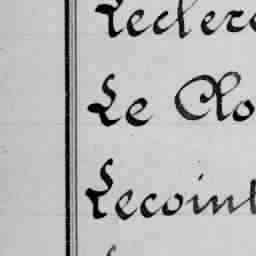 Leclerc
Le Clo
Lecoint